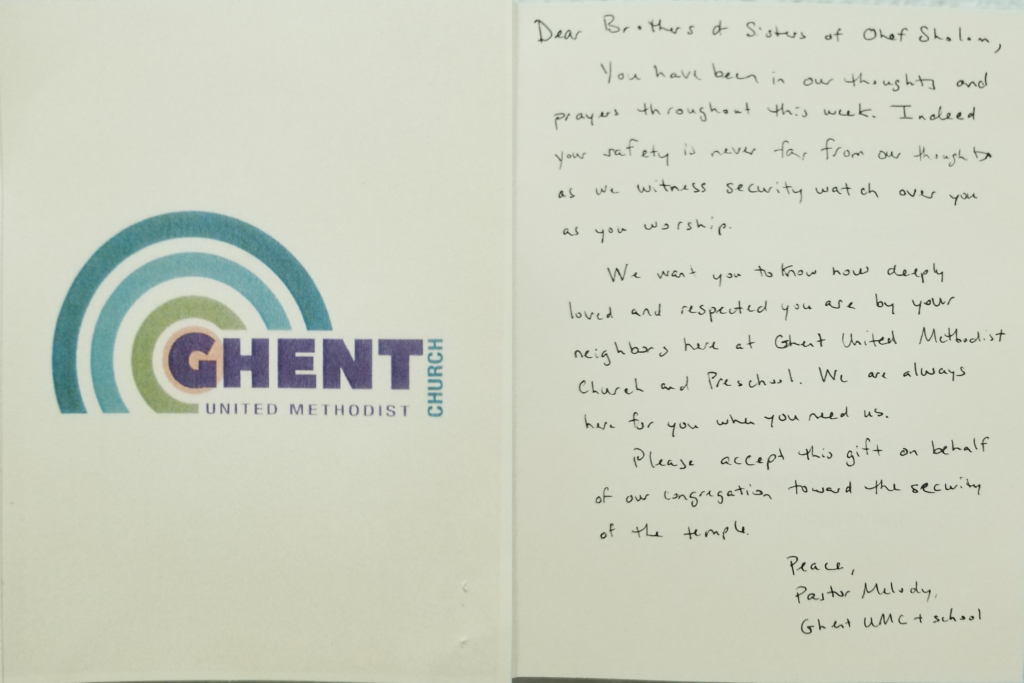 GHENT
UNITED METHODIST
CHURCH
Dear Brothers & Sisters of Ohef Sholom,
You have been in our thoughts and
prayers throughout this week. Indeed
your safety is never far from our thoughts
as we witness security watch over you
as you worship.
We want you to know how deeply
loved and respected you are by your
neighbors here at Ghent United Methodist
Church and Preschool. We are always
here for you when you need us.
Please accept this gift on behalf
of our congregation toward the security
of the temple.
Peace,
Pastor Melody,
Ghent UMC + school